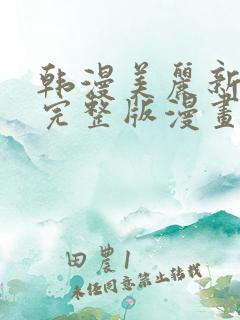 韩漫美麗新
完整版漫畫
田農1
未经同意禁止转载